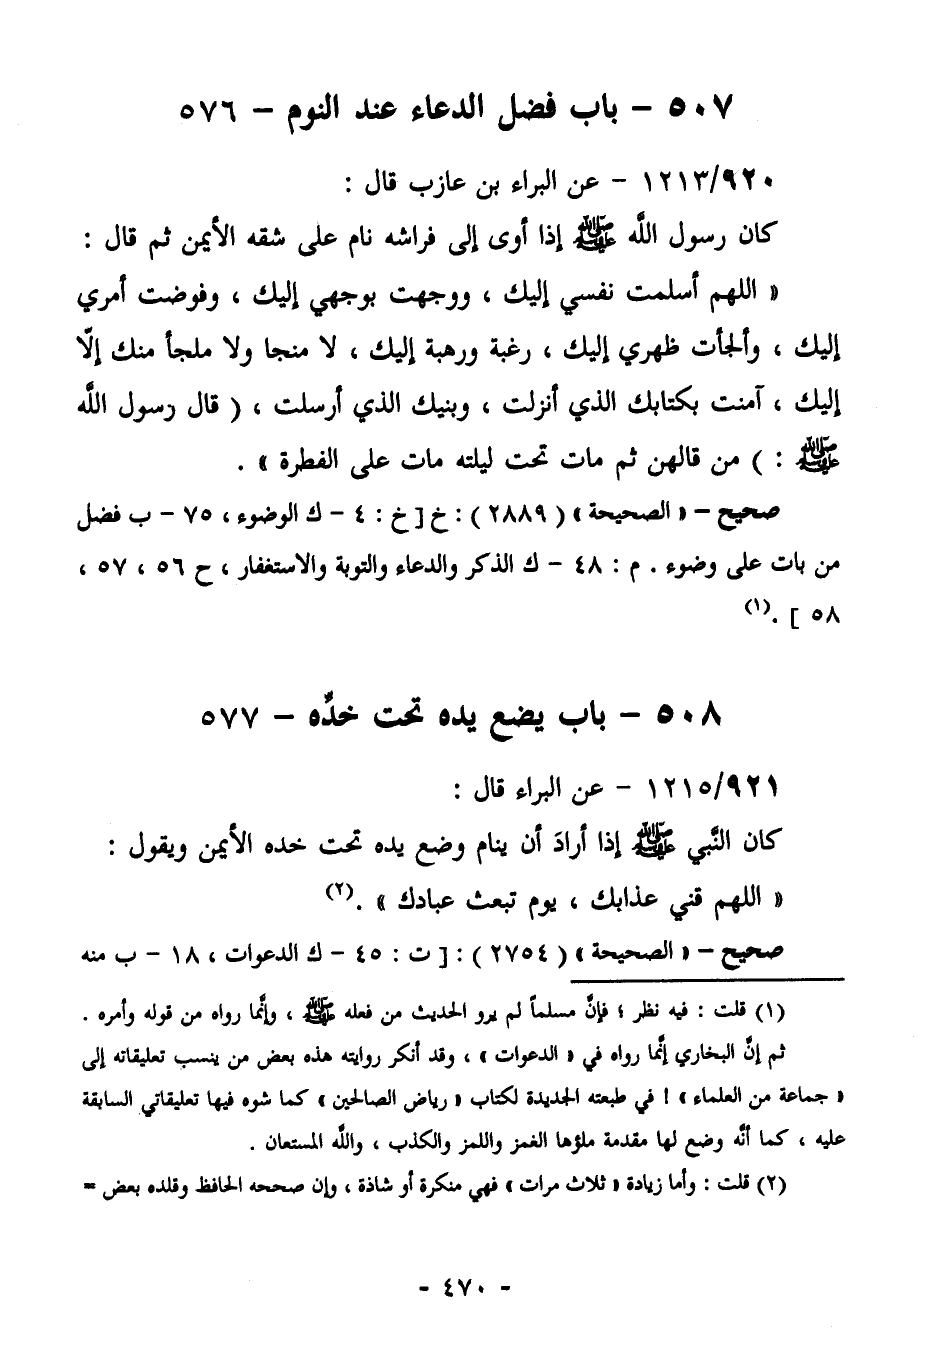 ٥٠٧ – باب فضل الدعاء عند النوم – ٥٧٦
١٢١٣/٩٢٠ – عن البراء بن عازب قال :
كان رسول اللَّه ﷺ إذا أوى إلى فراشه نام على شقه الأيمن ثم قال :
« اللهم أسلمت نفسي إليك ، ووجهت بوجهي إليك ، وفوضت أمري
إليك ، وألجأت ظهري إليك ، رغبة ورهبة إليك ، لا منجا ولا ملجأ منك إلّا
إليك ، آمنت بكتابك الذي أنزلت ، وبنيك الذي أرسلت ، ( قال رسول اللَّه
ﷺ : ) من قالهن ثم مات تحت ليلته مات على الفطرة » .
صحيح – « الصحيحة » ( ٢٨٨٩ ) : خ [ خ : ٤ – ك الوضوء ، ٧٥ – ب فضل
من بات على وضوء . م : ٤٨ – ك الذكر والدعاء والتوبة والاستغفار ، ح ٥٦ ، ٥٧ ،
٥٨ ] .(١)
٥٠٨ – باب يضع يده تحت خدِّه – ٥٧٧
١٢١٥/٩٢١ – عن البراء قال :
كان النَّبي ﷺ إذا أرادَ أن ينام وضع يده تحت خده الأيمن ويقول :
« اللهم قني عذابك ، يوم تبعث عبادك » .(٢)
صحيح – « الصحيحة » ( ٢٧٥٤ ) : [ ت : ٤٥ – ك الدعوات ، ١٨ – ب منه
(١) قلت : فيه نظر ؛ فإنَّ مسلماً لم يرو الحديث من فعله ﷺ ، وإنَّما رواه من قوله وأمره .
ثم إنَّ البخاري إنَّما رواه في « الدعوات » ، وقد أنكر روايته هذه بعض من ينسب تعليقاته إلى
« جماعة من العلماء » ! في طبعته الجديدة لكتاب « رياض الصالحين » كما شوه فيها تعليقاتي السابقة
عليه ، كما أنَّه وضع لها مقدمة ملؤها الغمز واللمز والكذب ، واللَّه المستعان .
(٢) قلت : وأما زيادة « ثلاث مرات » فهي منكرة أو شاذة ، وإن صححه الحافظ وقلده بعض =
- ٤٧٠ -